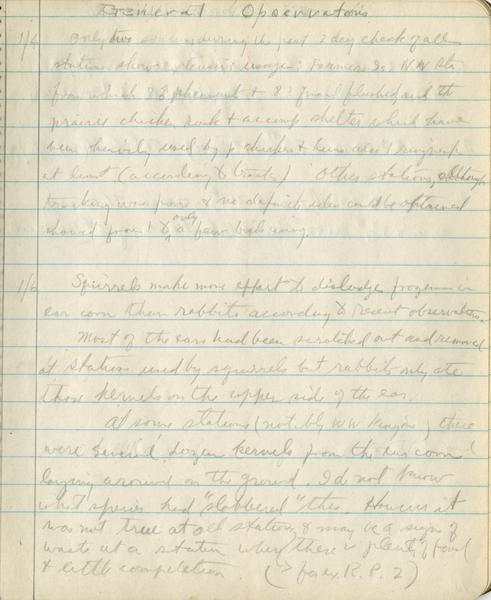 General Observations
1/4 Only two stations during the past 2 day check of all
stations showed heavy usage: Farmers Is, N.W. Sta.
from which 8 pheasant & 8 quail flushed and the
prairie chicken rank & accomp shelter which have
been heavily used by p. chicken & hens also 1 ringneck
at least (according to tracks) Other stations, although
tracking was poor & no definite idea could be obtained
showed from 1 to only a few birds using.
1/6 Squirrels make more effort to dislodge frozen in
ear corn than rabbits according to recent observations.
Most of the ears had been scratched out and removed
at stations used by squirrels but rabbits only ate
those kernels on the upper side of the ear.
At some stations (notably WW ) there
were several dozen kernels from the ear corn
laying around on the ground. I do not know
what species had "slobbered" this. However it
was not true at all stations & may be a sign of
waste at a station where there is plenty of food
& little competition. (> for ex. R. P. 2)